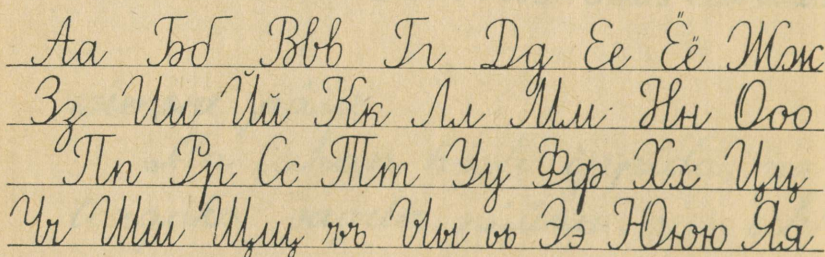 Аа Бб Ввв Гг Дд Ее Ёё Жж
Зз Ии Йй Кк Лл Мм Нн Ооо
Пп Рр Сс Тт Уу Фф Хх Цц
Чч Шш Щщ ъъ Ыы ьь Ээ Ююю Яя